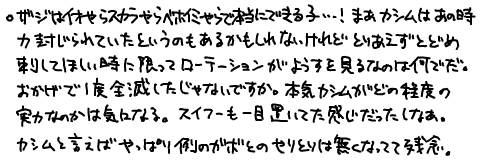 。ザジはイオやらスカラやらベホミやらで本当にできる子…!まあカシムはあの時
力封じられていたというのもあるかもしれないけれどとりあえずとどめ
刺してほしい時に限ってローテーションがようすを見るなのは何でだ。
おかげで1度全滅したじゃないですか。本気カシムがどの程度の
実力なのかは気になる。スイフーも一目置いてた感じだったしなあ。
カシムと言えばやっぱり例のガボとのやりとりは無くなってて残念。